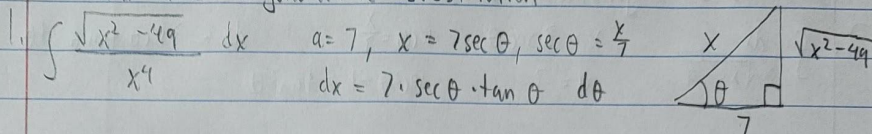 1. ∫ √(x² - 49) / x⁴ dx a = 7, x = 7 sec θ, sec θ = x/7
dx = 7 · sec θ · tan θ dθ
x √(x² - 49)
θ
7